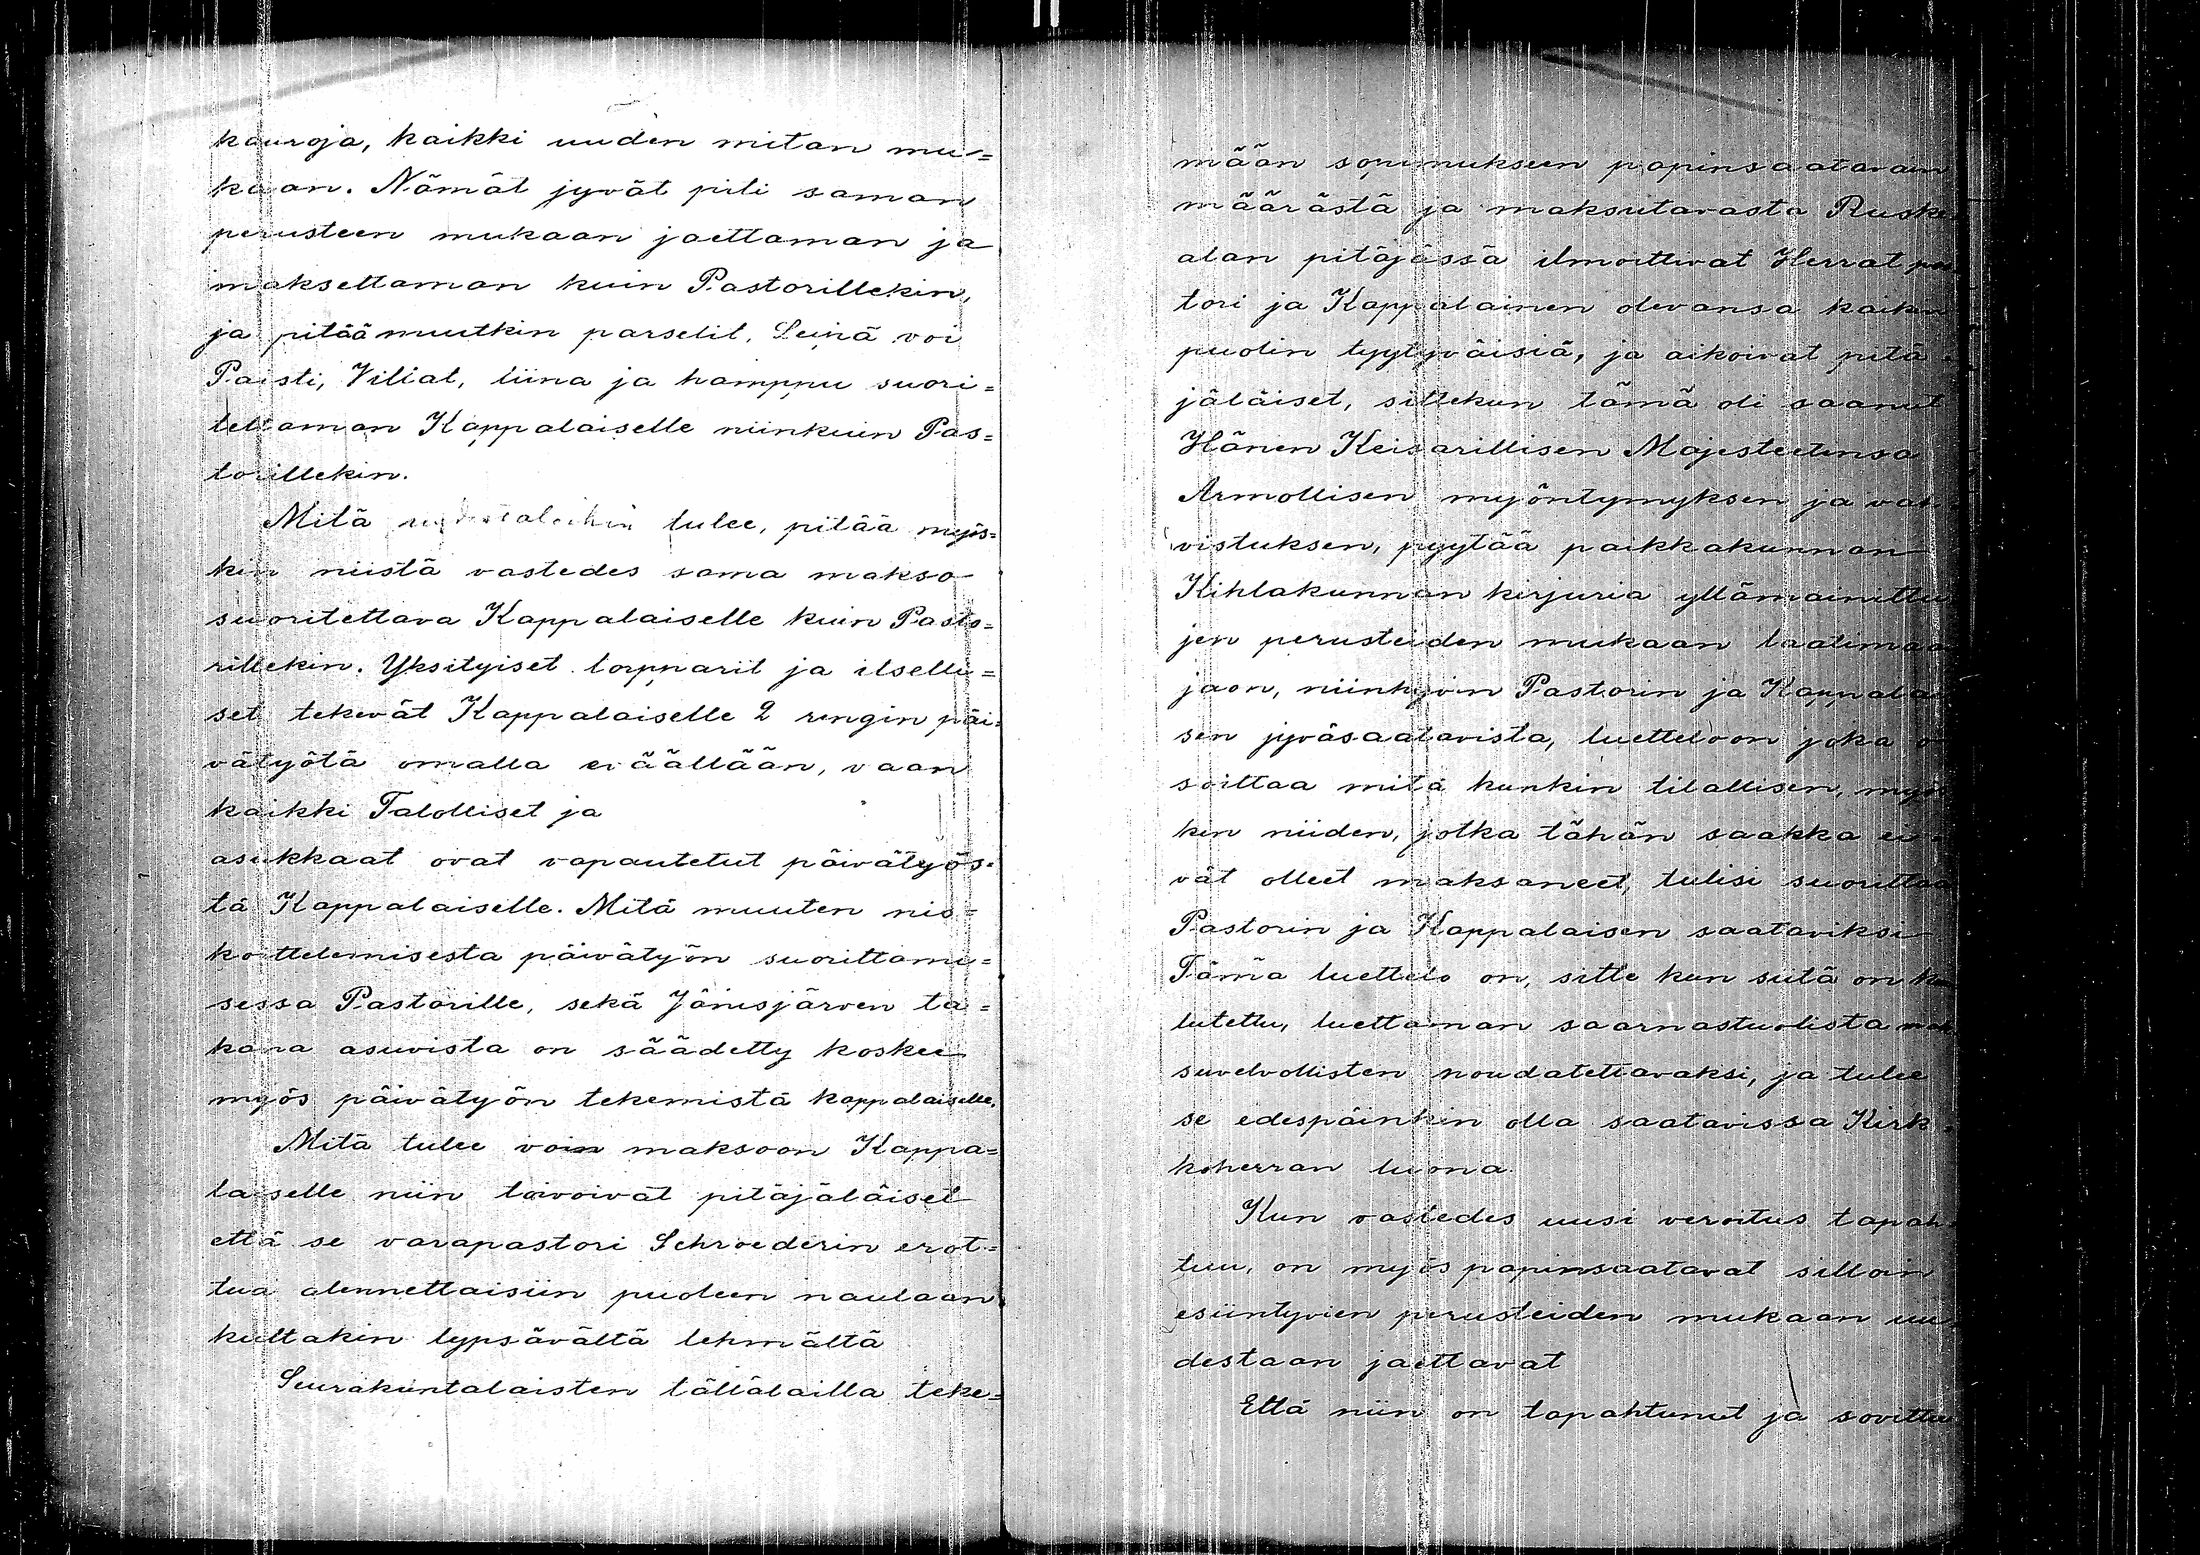 kauroja, kaikki uuden mitan mu=
kaan. Nämät jyvät piti saman
perusteen mukaan jaettaman ja
maksettaman kuin Pastorillekin,
ja pitää muutkin parselit, Leipä voi
Paisti, Villat, liina ja hamppu suori=
tettaman Kappalaiselle niinkuin Pas=
torillekin.
Mitä tulee, pitää myös=
kin niistä vastedes sama makso
suoritettava Kappalaiselle kuin Pasto=
rillekin. Yksityiset torpparit ja itselli=
set tekevät Kappalaiselle 2 ringin päi=
vätyötä omalla eväällään, vaan
kaikki Talolliset ja
asukkaat ovat vapautetut päivätyös=
tä Kappalaiselle. Mitä muuten nis=
koittelemisesta päivätyön suorittami=
sessa Pastorille, sekä Jänisjärven ta=
kana asuvista on säädetty koskee
myös päivätyön tekemistä kappalaiselle.
Mitä tulee voin maksoon Kappa=
laiselle niin toivoivat pitäjäläiset
että se varapastori Schroederin erot=
tua alennettaisiin puoleen naulaan
kultakin lypsävältä lehmältä
Seurakuntalaisten tällälailla teke=
mään sopimukseen papinsaatavain
määrästä ja maksutavasta Ruske
alan pitäjässä ilmoittivat Herrat pas
tori ja Kappalainen olevansa kaikin
puolin tyytyväisiä, ja aikoivat pitä
jäläiset, sittekun tämä oli saanut
Hänen Keisarillisen Majesteetinsa
Armollisen myöntymyksen ja vah
vistuksen, pyytää paikkakunnan
Kihlakunnan kirjuria yllämainittu
jen perusteiden mukaan laatimaa
jaon, niinhyvin Pastorin ja Kappalai
sen jyväsaatavista, luetteloon joka o
soittaa mitä kunkin tilallisen, myös
kin niiden, jotka tähän saakka ei
vät olleet maksaneet, tulisi suorittaa
Pastorin ja Kappalaisen saataviksi
Tämä luettelo on, sitte kun siitä on ku
lutettu, luettaman saarnastuolista mak
suvelvollisten noudatettavaksi, ja tulee
se edespäinkin olla saatavissa Kirk
koherran luona
Kun vastedes uusi veroitus tapah
tuu, on myös papinsaatavat silloin
esiintyvien perusteiden mukaan uu
destaan jaettavat
Että niin on tapahtunut ja sovittu